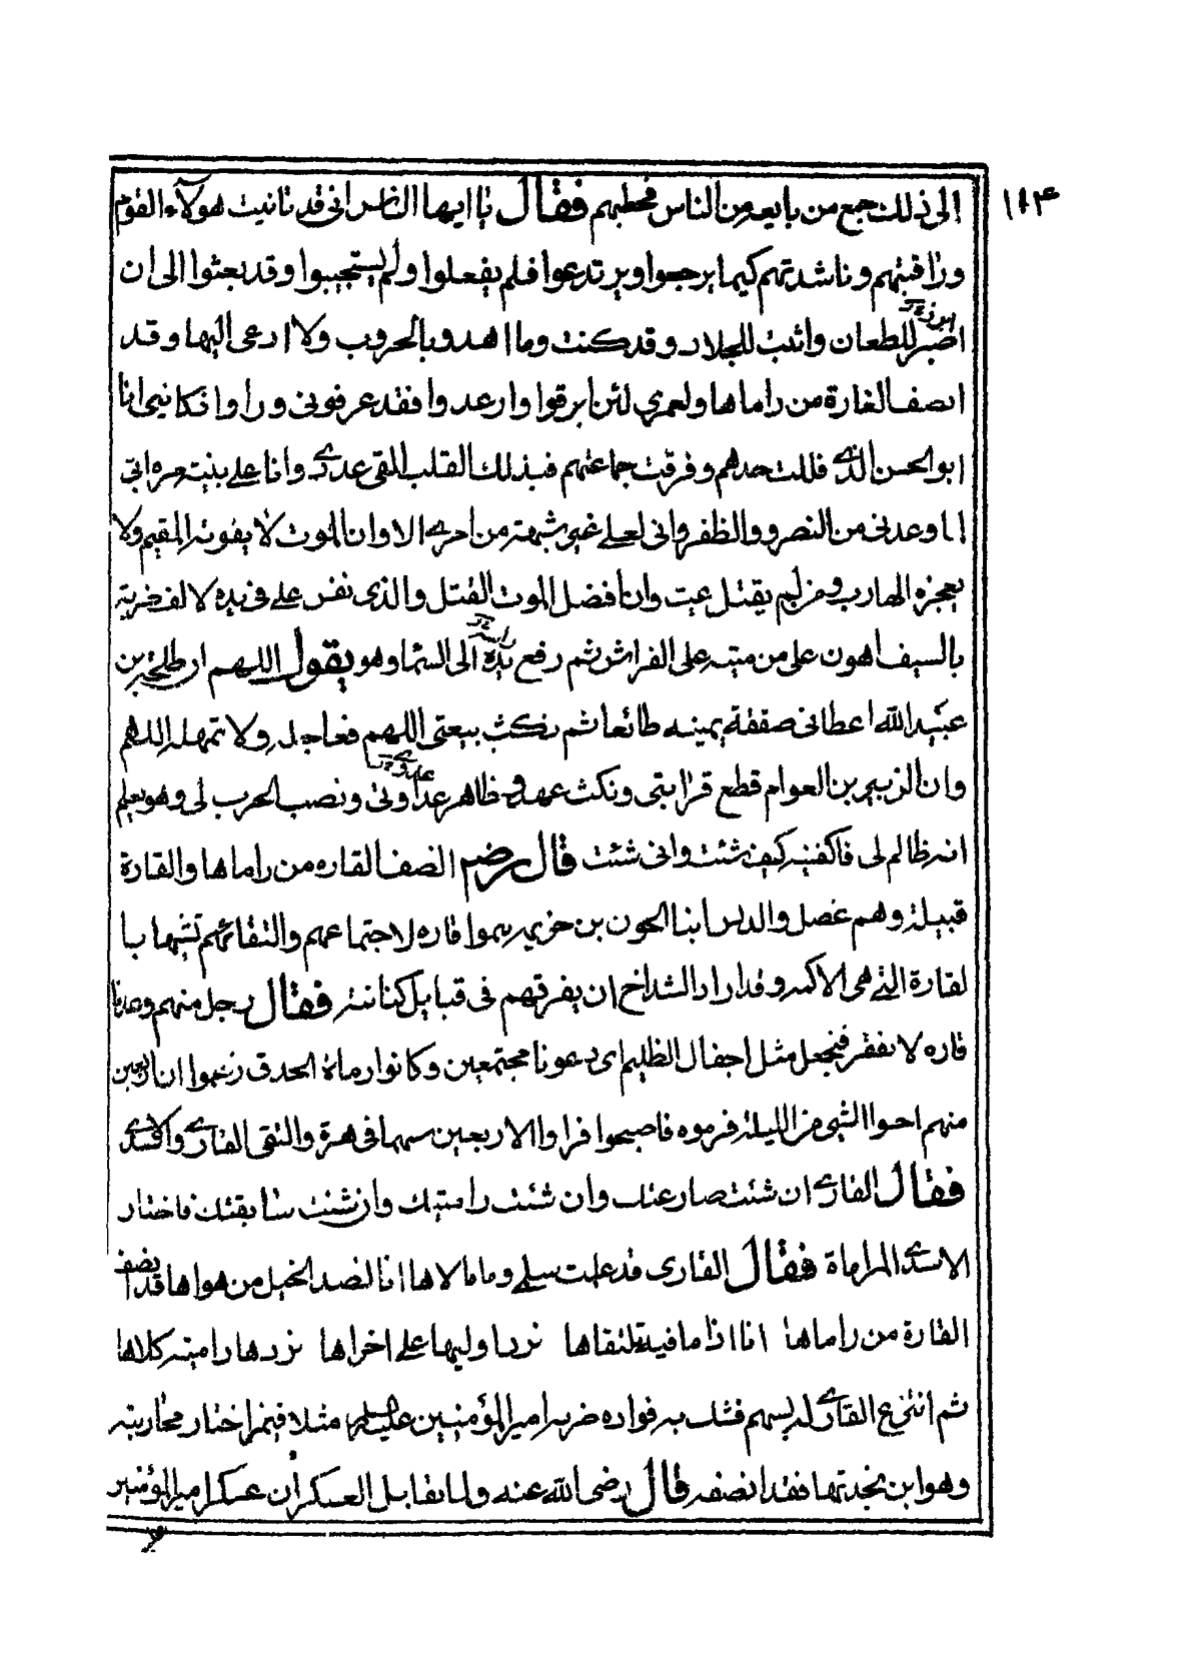 ١٨٤
الى ذلك جمع من بايعه من الناس فخطبهم فقال يا ايها الناس انى قد تانيت هولآء القوم
وراقبتهم وناشدتهم كيما يرجعوا ويرتدعوا فلم يفعلوا ولم يستجيبوا وقد بعثوا الى ان
ابرز
اصبر للطعان واثبت للجلاد وقد كنت وما اهدد بالحروب ولا ادعى اليها وقد
انصف القارة من راماها ولعمري لئن ابرقوا وارعدوا فقد عرفونى وراوا نكايتى انا
ابو الحسن الذى فللت حدهم وفرقت جماعتهم فبذلك القلب القى عدوى وانا على بينة من ربى
لما وعدنى من النصر والظفر وانى لعلى غير شبهة من امرى الا وان الموت لا يفوته المقيم ولا
يعجزه الهارب ومن لم يقتل يمت وان افضل الموت القتل والذى نفس على فى يده لالف ضربة
بالسيف اهون على من ميتة على الفراش ثم رفع يده الى السماء وهو يقول اللهم ان طلحة بن
عبيد الله اعطانى صفقة يمينه طائعا ثم نكث بيعتى اللهم فعاجله ولا تمهله اللهم
وان الزبير بن العوام قطع قرابتى ونكث عهدى وظاهر عدوى ونصب الحرب لى وهو يعلم
انه ظالم لى فاكفنيه كيف شئت وانى شئت قال رضه انصف القاره من راماها والقارة
قبيلة وهم عضل والديس ابنا الهون بن خزيمه سموا قاره لاجتماعهم والتفافهم تشبيها با
لقارة التى هى الاكمه وقد اراد الشداخ ان يفرقهم فى قبايل كنانة فقال رجل منهم دعونا
قاره لا تنفر فنجفل مثل اجفال الظليم اى دعونا مجتمعين وكانوا رماة الحدق زعموا ان اربعين
منهم احسوا الشى من الليلة فرموه فاصبحوا فراوا الاربعين سهما فى هرة والتقى القارى والاسدى
فقال القارى ان شئت صارعتك وان شئت راميتك وان شئت سابقتك فاختار
الاسدى المراماة فقال القارى قد علمت سلمى وما والاها انا نصد الخيل من هواها قد انصف
القارة من راماها انا اذا ما فية نلقاها نرد اوليها على اخراها نردها راميه كلاها
ثم انتزع القارى له بسهم فشك به فواده ضربه امير المؤمنين عليه السلم مثلا فيمن اختار محاربته
وهو ابن بجدتها فقد انصفه قال رضى الله عنه ولما تقابل العسكران عسكر امير المؤمنين